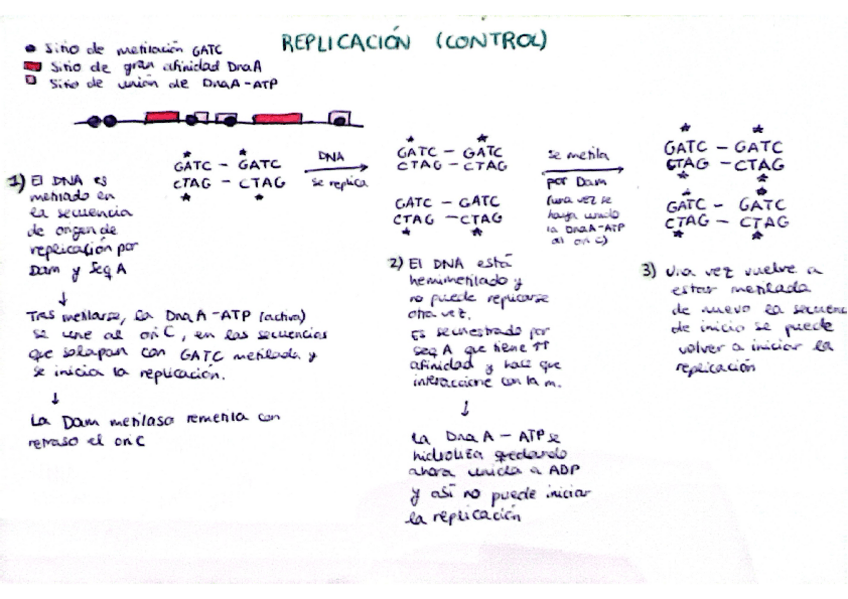 REPLICACIÓN (CONTROL)
Sitio de metilación GATC
Sitio de gran afinidad DnaA
Sitio de unión de DnaA-ATP
GATC - GATC
CTAG - CTAG
DNA
se replica
GATC - GATC
CTAG - CTAG
GATC - GATC
CTAG - CTAG
se metila
por Dam
(una vez se
haya unido
la DnaA-ATP
al oriC)
GATC - GATC
CTAG - CTAG
GATC - GATC
CTAG - CTAG
1) El DNA es
metilado en
la secuencia
de origen de
replicación por
Dam y Seq A
↓
Tras metilarse, la DnaA-ATP (activa)
se une al oriC, en las secuencias
que solapan con GATC metilada y
se inicia la replicación.
↓
La Dam metilasa remetila con
retraso el oriC
2) El DNA está
hemimetilado y
no puede replicarse
otra vez.
Es secuestrado por
seq A que tiene ↑↑
afinidad y hace que
interaccione con la m.
↓
La DnaA - ATP se
hidroliza quedando
ahora unida a ADP
y así no puede iniciar
la replicación
3) Una vez vuelve a
estar metilada
de nuevo la secuenc
de inicio se puede
volver a iniciar la
replicación